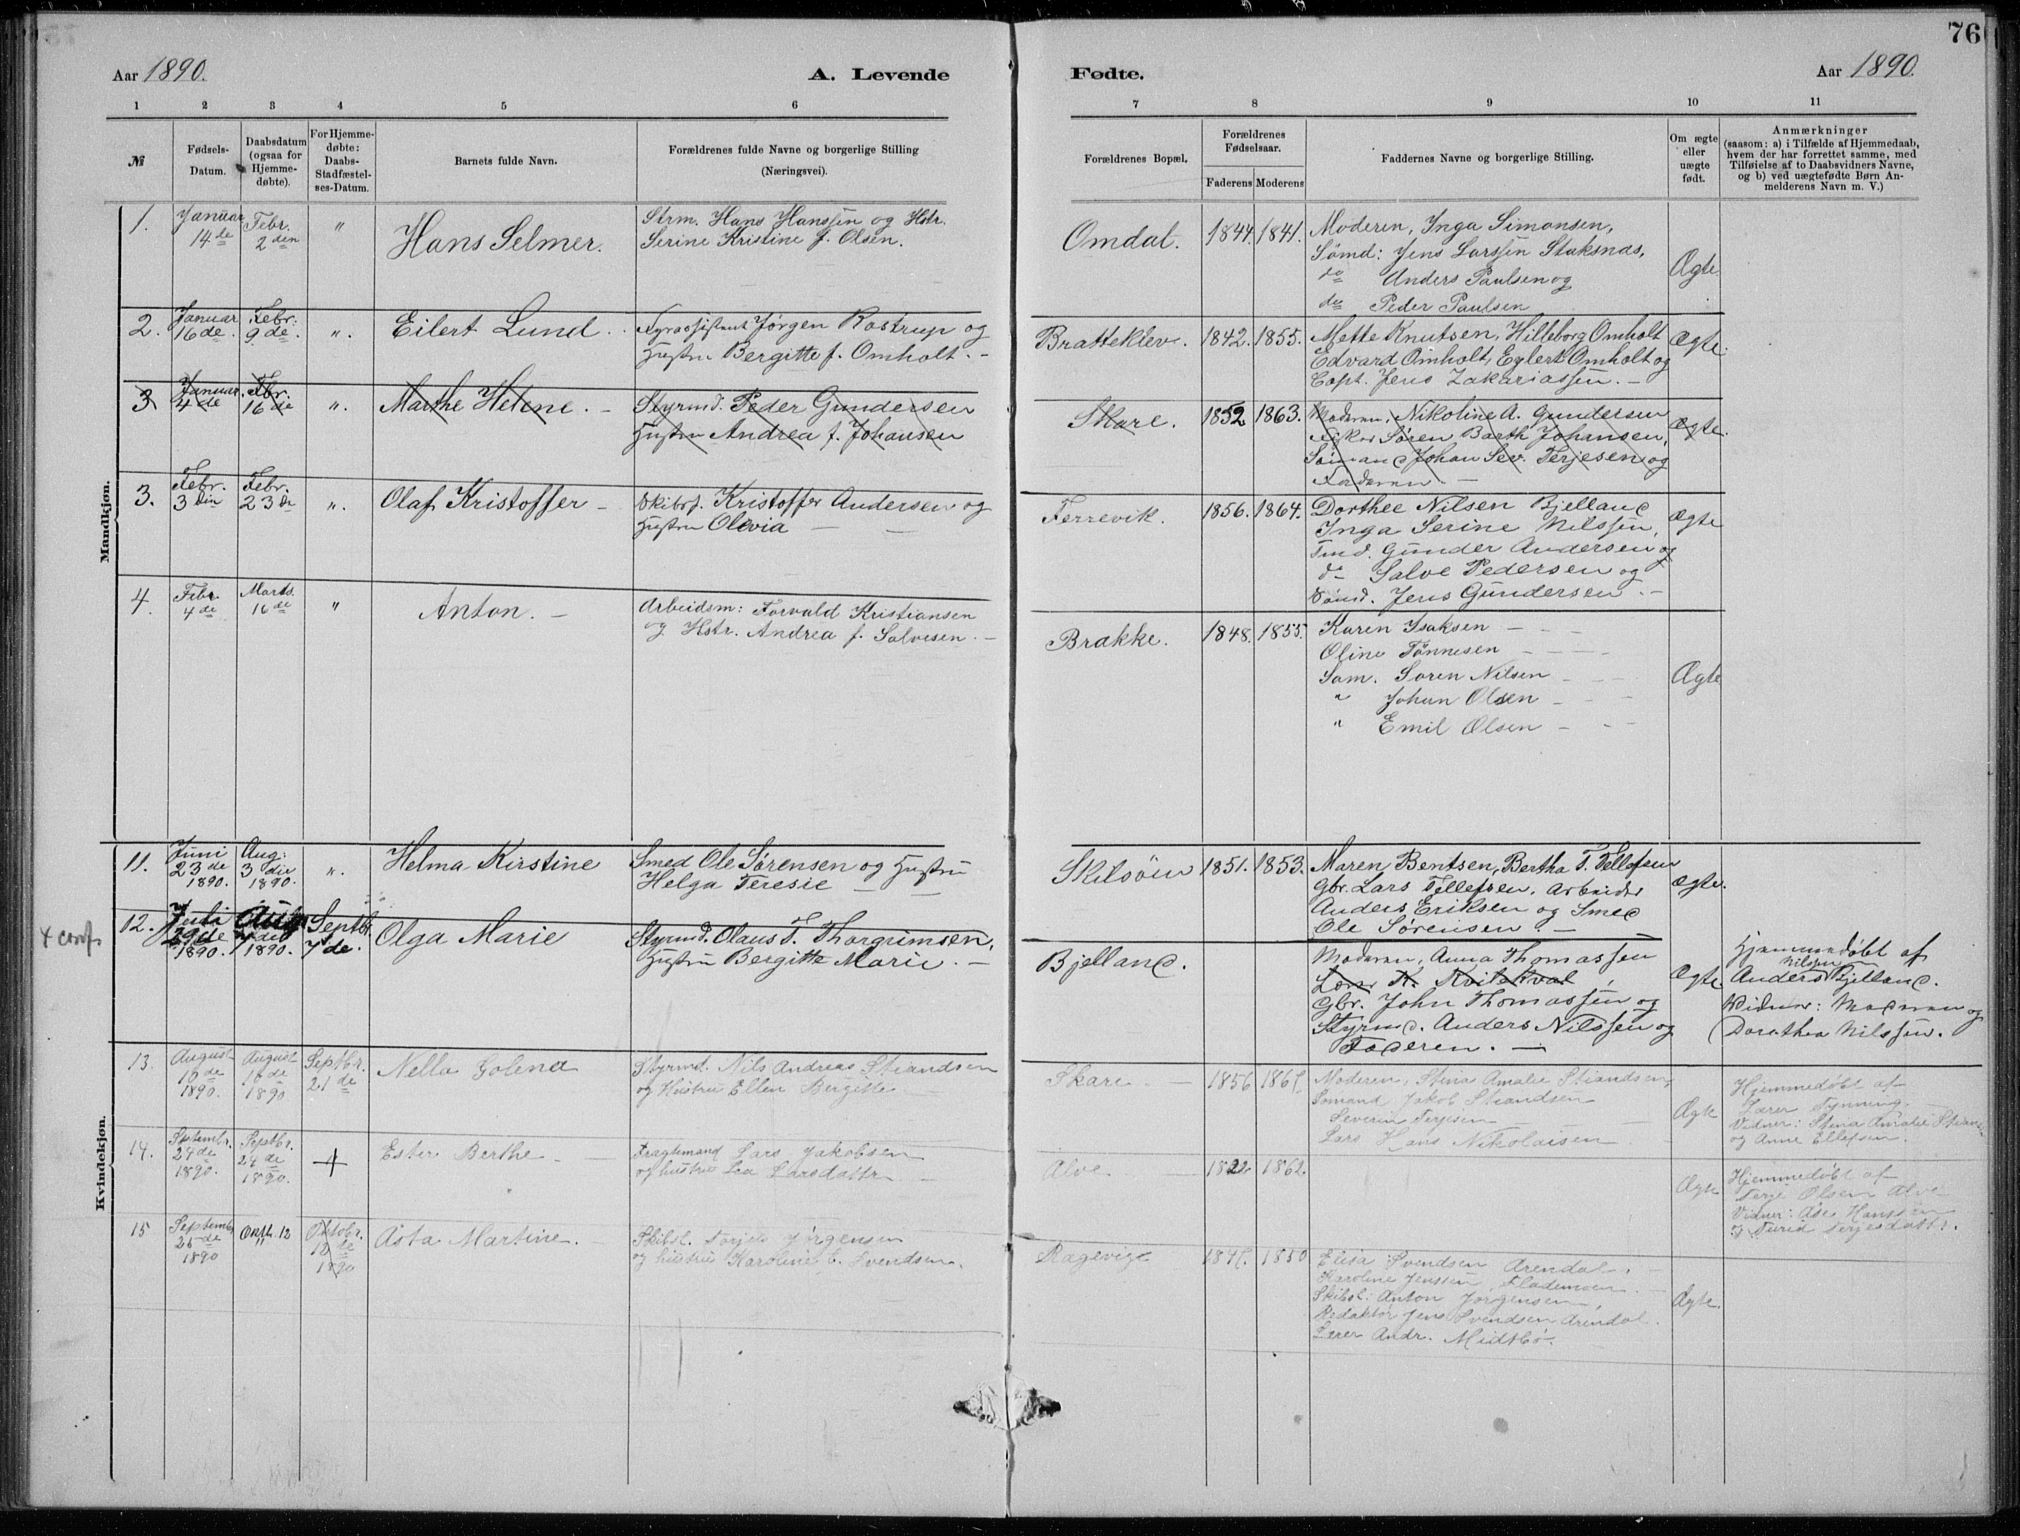 76
Aar 1890.
A. Levende
Fødte.
Aar 1890.
1 2 3 4 5 6 7 8 9 10 11
№
Fødsels-
Datum.
Daabsdatum
(ogsaa for
Hjemme-
døbte).
For Hjemme-
døbte:
Daabs-
Stadfæstel-
ses-Datum.
Barnets fulde Navn.
Forældrenes fulde Navne og borgerlige Stilling
(Næringsvei).
Forældrenes Bopæl.
Forældrenes
Fødselsaar.
Faderens Moderens
Faddernes Navne og borgerlige Stilling.
Om ægte
eller
uægte
født.
Anmærkninger
(saasom: a) i Tilfælde af Hjemmedaab,
hvem der har forrettet samme, med
Tilføielse af to Daabsvidners Navne,
og b) ved uægtefødte Børn An-
melderens Navn m. V.)
Mandkjøn.
1.
Januar
14de
Febr.
2den
"
Hans Selmer.
Strm. Hans Hanssen og Hstr.
Serine Kristine f. Olsen.
Omdal.
1844. 1841.
Moderen, Inga Simonsen,
Sømd: Jens Larssen Staksnæs,
do Anders Paulsen og
do Peder Paulsen
Ægte
2.
Januar
16de.
Febr.
9de.
".
Eilert Lund.
Jørgen Rostrup og
Hustru Bergitte f. Omholt. -
Bratteklev.
1842. 1855.
Mette Knutsen, Hilleborg Omholt
Edvard Omholt, Eylert Omholt og
Capt. Jens Zakariassen. -
Ægte.
3
Januar.
4de
Fbr.
16de
".
Marthe Helene. -
Styrmd. Peder Gundersen
Hustru Andrea f. Johansen
Skare.
1852 1863.
Moderen, Nikoline A. Gundersen
Søren Barth Johansen,
Sømand Johan Sev. Terjesen og
Faderen. -
Ægte.
3.
Febr.
3din
Febr.
23de
".
Olaf Kristoffer -
Skibsf. Kristoffer Andersen og
Hustru Olevia -
Terrevik.
1856. 1864.
Dorthee Nilsen Bjelland
Inga Serine Nilssen,
Tmd. Gunder Andersen og
do Salve Pedersen og
Sømd. Jens Gundersen. -
Ægte
4.
Febr.
4de
Marts.
16de
"
Anton. -
Arbeidsm: Torvald Kristiansen
og Hstr. Andrea f. Salvesen. -
Brække.
1848. 1855.
Karen Isaksen -
Oline Tønnesen
Søm. Søren Nilsen
" Johan Olsen
" Emil Olsen
Ægte
Kvindekjøn.
11.
Juni
23de
1890.
Aug:
3die
1890.
".
Helma Kirstine
Smed Ole Sørensen og Hustru
Helga Teresie
Skilsøen
1851. 1853.
Maren Bentsen, Bertha T. Tellefsen
Gbr. Lars Tellefsen, Arbeider
Anders Eriksen og Smed
Ole Sørensen. -
Ægte.
12.
Juli
29de
1890.
Aug
1890.
Septbr.
7de.
Olga Marie
Styrmd. Olaus T. Thorgrimsen,
Hustru Bergitte Marie. -
Bjelland.
Moderen, Anna Thomassen
Lærer K. Kvitekval,
Gbr. John Thomassen og
Styrmd. Anders Nilssen og
Faderen. -
Ægte.
Hjemmedøbt af
Nilssen
Anders Bjelland.
Vidner: Madman og
Dorothea Nilssen.
13.
August
16de
1890.
August
16de
1890
Septbr.
21de
Nella Golena
Styrmd. Nils Andreas Strandsen
og Hustru Ellen Bergitte
Skare
1856
Moderen, Stina Amalie Strandsen,
Sømand Jakob Strandsen
Severin Terjesen
Lars Hans Nikolaisen
Ægte
Hjemmedøbt af
Lærer Tynning.
Vidner: Stina Amalie
og Anne Ellefsen.
14.
Septembr.
24de
1890.
Septbr.
24de
1890.
+
Ester Berthe
Fragtmand Lars Jakobsen
og hustru Lea Larsdattr
Alve
1822 1862.
Ægte
Hjemmedøbt af
Terje Olsen Alve
Vidner: Åse Hanssen
og Turid Terjesdattr.
15
Septembr
25de
1890
12
Oktobr.
12te
1890
Åsta Martine.
Skibst. Torjels Jørgensen
og hustru Karoline C. Svendsen.
Rægevige
1850
Elisa Svendsen Arendal.
Karoline Jenssen, Flademoen
Skibst: Anton Jørgensen,
Redaktør Jens Svendsen Arendal.
Lærer Andr. Midtbø.
Ægte.